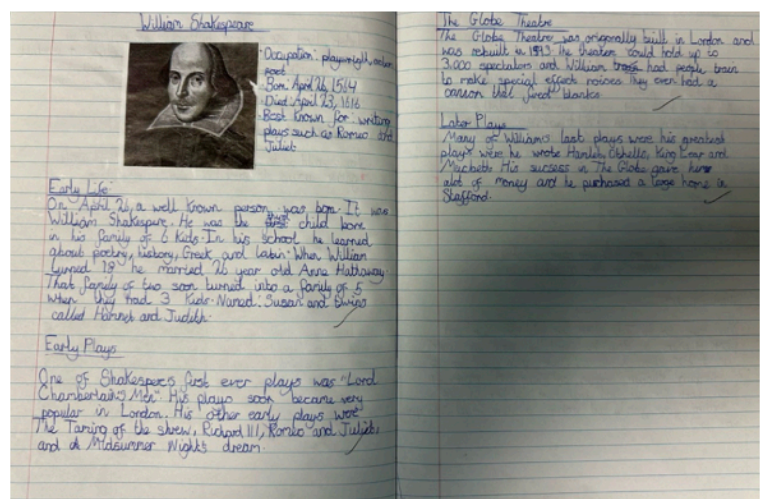 William Shakespeare
Occupation: playwright, actor,
poet
Born: April 26, 1564
Died: April 23, 1616
Best known for: writing
plays such as Romeo and
Juliet
Early Life:
On April 26, a well known person was born. It was
William Shakespere. He was the third child born
in his family of 6 kids. In his school he learned
about poetry, history, Greek and Latin. When William
turned 18 he married 26 year old Anne Hathaway.
That family of two soon turned into a family of 5
when they had 3 kids. Named: Susan and twins
called Hamnet and Judith.
Early Plays
One of Shakesperes first ever plays was "Lord
Chamberlain's Men". His plays soon became very
popular in London. His other early plays were
The Taming of the shrew, Richard III, Romeo and Juliet,
and A Midsummer Nights dream.
The Globe Theatre
The Globe Theatre was originally built in London and
was rebuilt in The theater could hold up to
3,000 spectators and William had people train
to make special effect noises They even had a
cannon that fired blanks.
Later Plays
Many of William's last plays were his greatest
plays were he wrote Hamlet, Othello, King Lear and
Macbeth His success in The Globe gave him
alot of money and he purchased a large home in
Stafford.